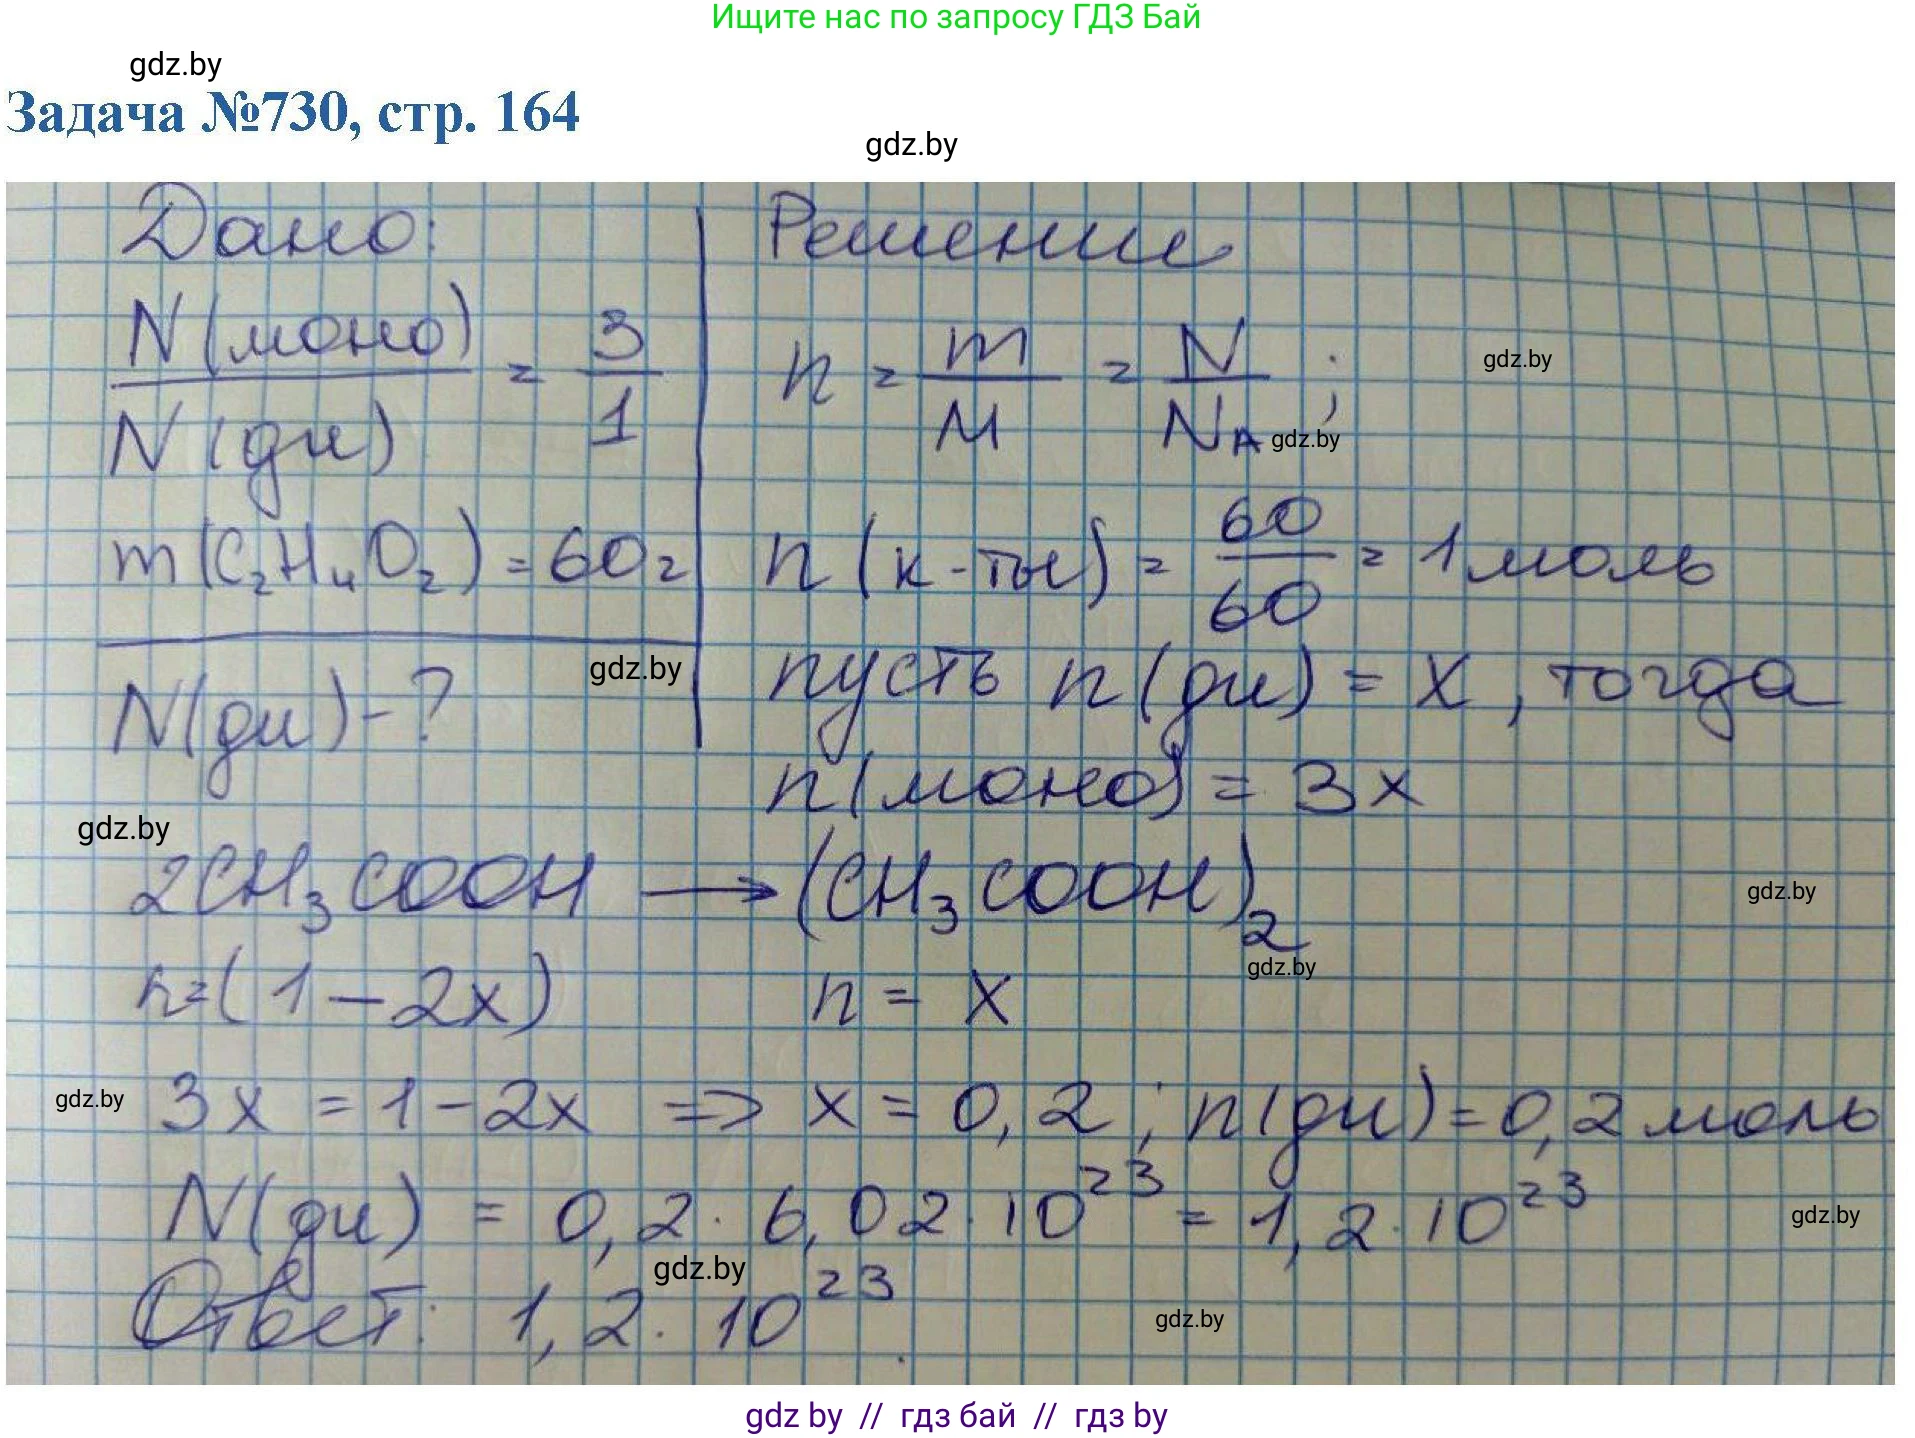 Ищите нас по запросу ГДЗ Бай
gdz.by
Задача №730, стр. 164
gdz.by
Дано:
N(моно)/N(ди) = 3/1
m(C₂H₄O₂) = 60г
N(ди) - ?
gdz.by
Решение
n = m/M = N/N_A ;
gdz.by
gdz.by
n(к-ты) = 60/60 = 1 моль
пусть n(ди) = x, тогда
n(моно) = 3x
gdz.by
2CH₃COOH → (CH₃COOH)₂
gdz.by
gdz.by
n=(1-2x) n = x
gdz.by
3x = 1-2x => x = 0,2; n(ди)=0,2 моль
N(ди) = 0,2 · 6,02 · 10²³ = 1,2 · 10²³
gdz.by
gdz.by
Ответ: 1,2 · 10²³.
gdz.by
gdz by // гдз бай // гдз by